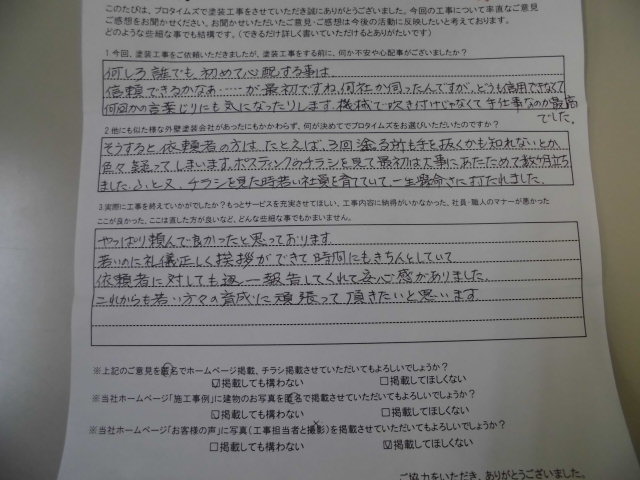 このたびは、プロタイムズで塗装工事をさせていただき誠にありがとうございました。今回の工事について率直なご意見
ご感想をお聞かせください。お聞かせいただいたご意見・ご感想は今後の活動に反映したいと考えております。
どのような些細な事でも結構です。(できるだけ詳しく書いていただけるとありがたいです)
1 今回、塗装工事をご依頼いただきましたが、塗装工事をする前に、何か不安や心配事がございましたか?
何しろ誰でも初めて心配する事は
信頼できるかなぁ……が最初ですね、何社か伺ったんですが、どうも信用できなくて
何回かの言葉じりにも気になったりします。機械で吹き付けじゃなくて手仕事なのが最高
でした。
2 他にも似た様な外壁塗装会社があったにもかかわらず、何が決めてでプロタイムズをお選びいただいたのですか?
そうすると、依頼者の方は、たとえば、3回塗る所も手を抜くかも知れないとか、
色々疑ってしまいます。ポスティングのチラシを見て最初は大事にあたためて数ヶ月立ち
ました。ふと又、チラシを見た時若い社員を育てていて、一生懸命さに打たれました。
3 実際に工事を終えていかがでしたか?もっとサービスを充実させてほしい、工事内容に納得がいかなかった、社員・職人のマナーが悪かった
ここが良かった、ここは直した方が良いなど、どんな些細な事でもかまいません。
やっぱり頼んで良かったと思っております。
若いのに礼儀正しく挨拶ができて時間にもきちんとしていて
依頼者に対しても逐一報告してくれて安心感がありました。
これからも若い方々の育成に頑張って頂きたいと思います
※上記のご意見を匿名でホームページ掲載、チラシ掲載させていただいてもよろしいでしょうか?
☑掲載しても構わない □掲載してほしくない
※当社ホームページ「施工事例」に建物のお写真を匿名で掲載させていただいてもよろしいでしょうか?
☑掲載しても構わない □掲載してほしくない
※当社ホームページ「お客様の声」に写真(工事担当者と撮影)を掲載させていただいてもよろしいでしょうか?
□掲載しても構わない ☑掲載してほしくない
ご協力をいただき、ありがとうございました。